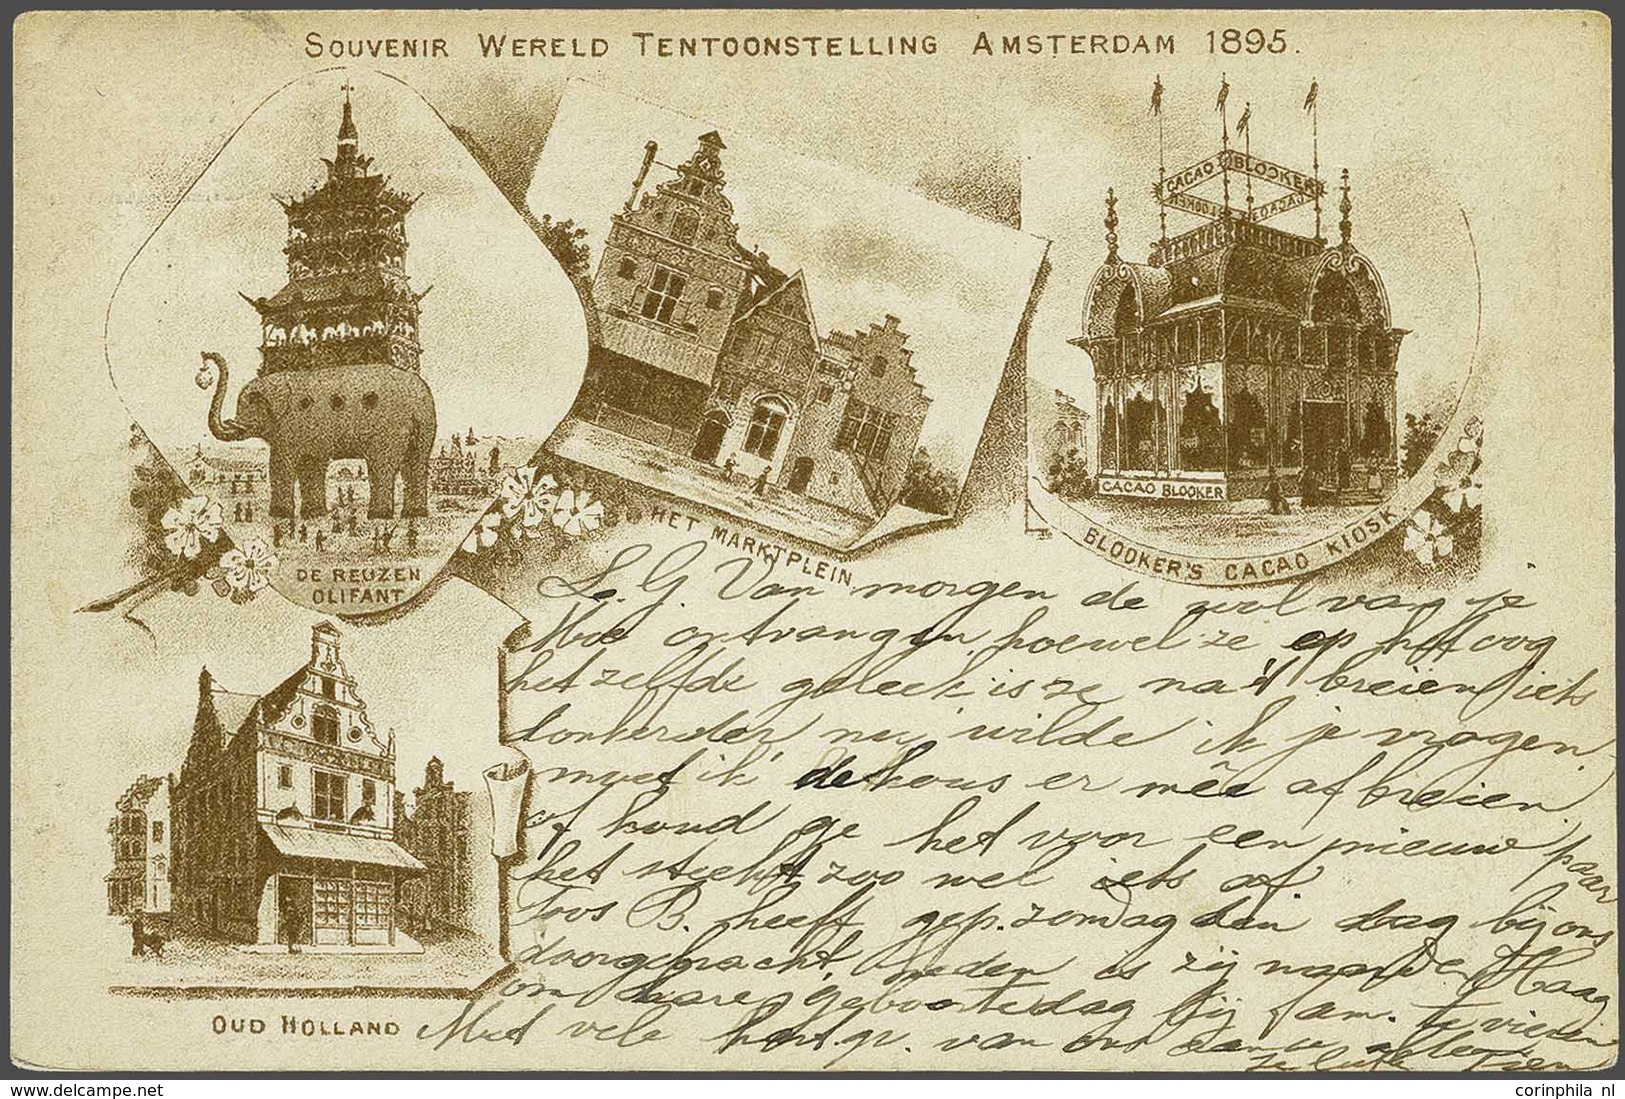 SOUVENIR WERELD TENTOONSTELLING AMSTERDAM 1895.
CACAO BLOOKER
CACAO BLOOKER
DE REUZEN
OLIFANT
HET MARKTPLEIN
BLOOKER'S CACAO KIOSK
OUD HOLLAND
L. G. Van morgen de wol van je
Moe ontvangen, hoewel ze op het oog
het zelfde geleek is ze na 't breien iets
donkerder nu wilde ik je vragen
moet ik de kous er mêe af breien
of houd ge het voor een nieuw paar
het steekt zoo wel iets af.
Toos B. heeft gep. zondag den dag bij ons
doorgebracht, heden is zij naar Den Haag
om hare geboortedag bij fam. te vieren
Met vele hart. gr. van ons
Tien
corinphila nl